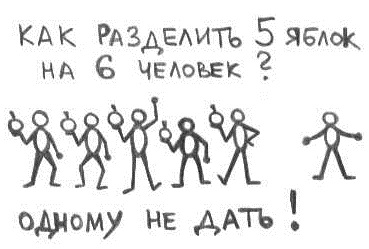 КАК РАЗДЕЛИТЬ 5 ЯБЛОК
НА 6 ЧЕЛОВЕК?
ОДНОМУ НЕ ДАТЬ!